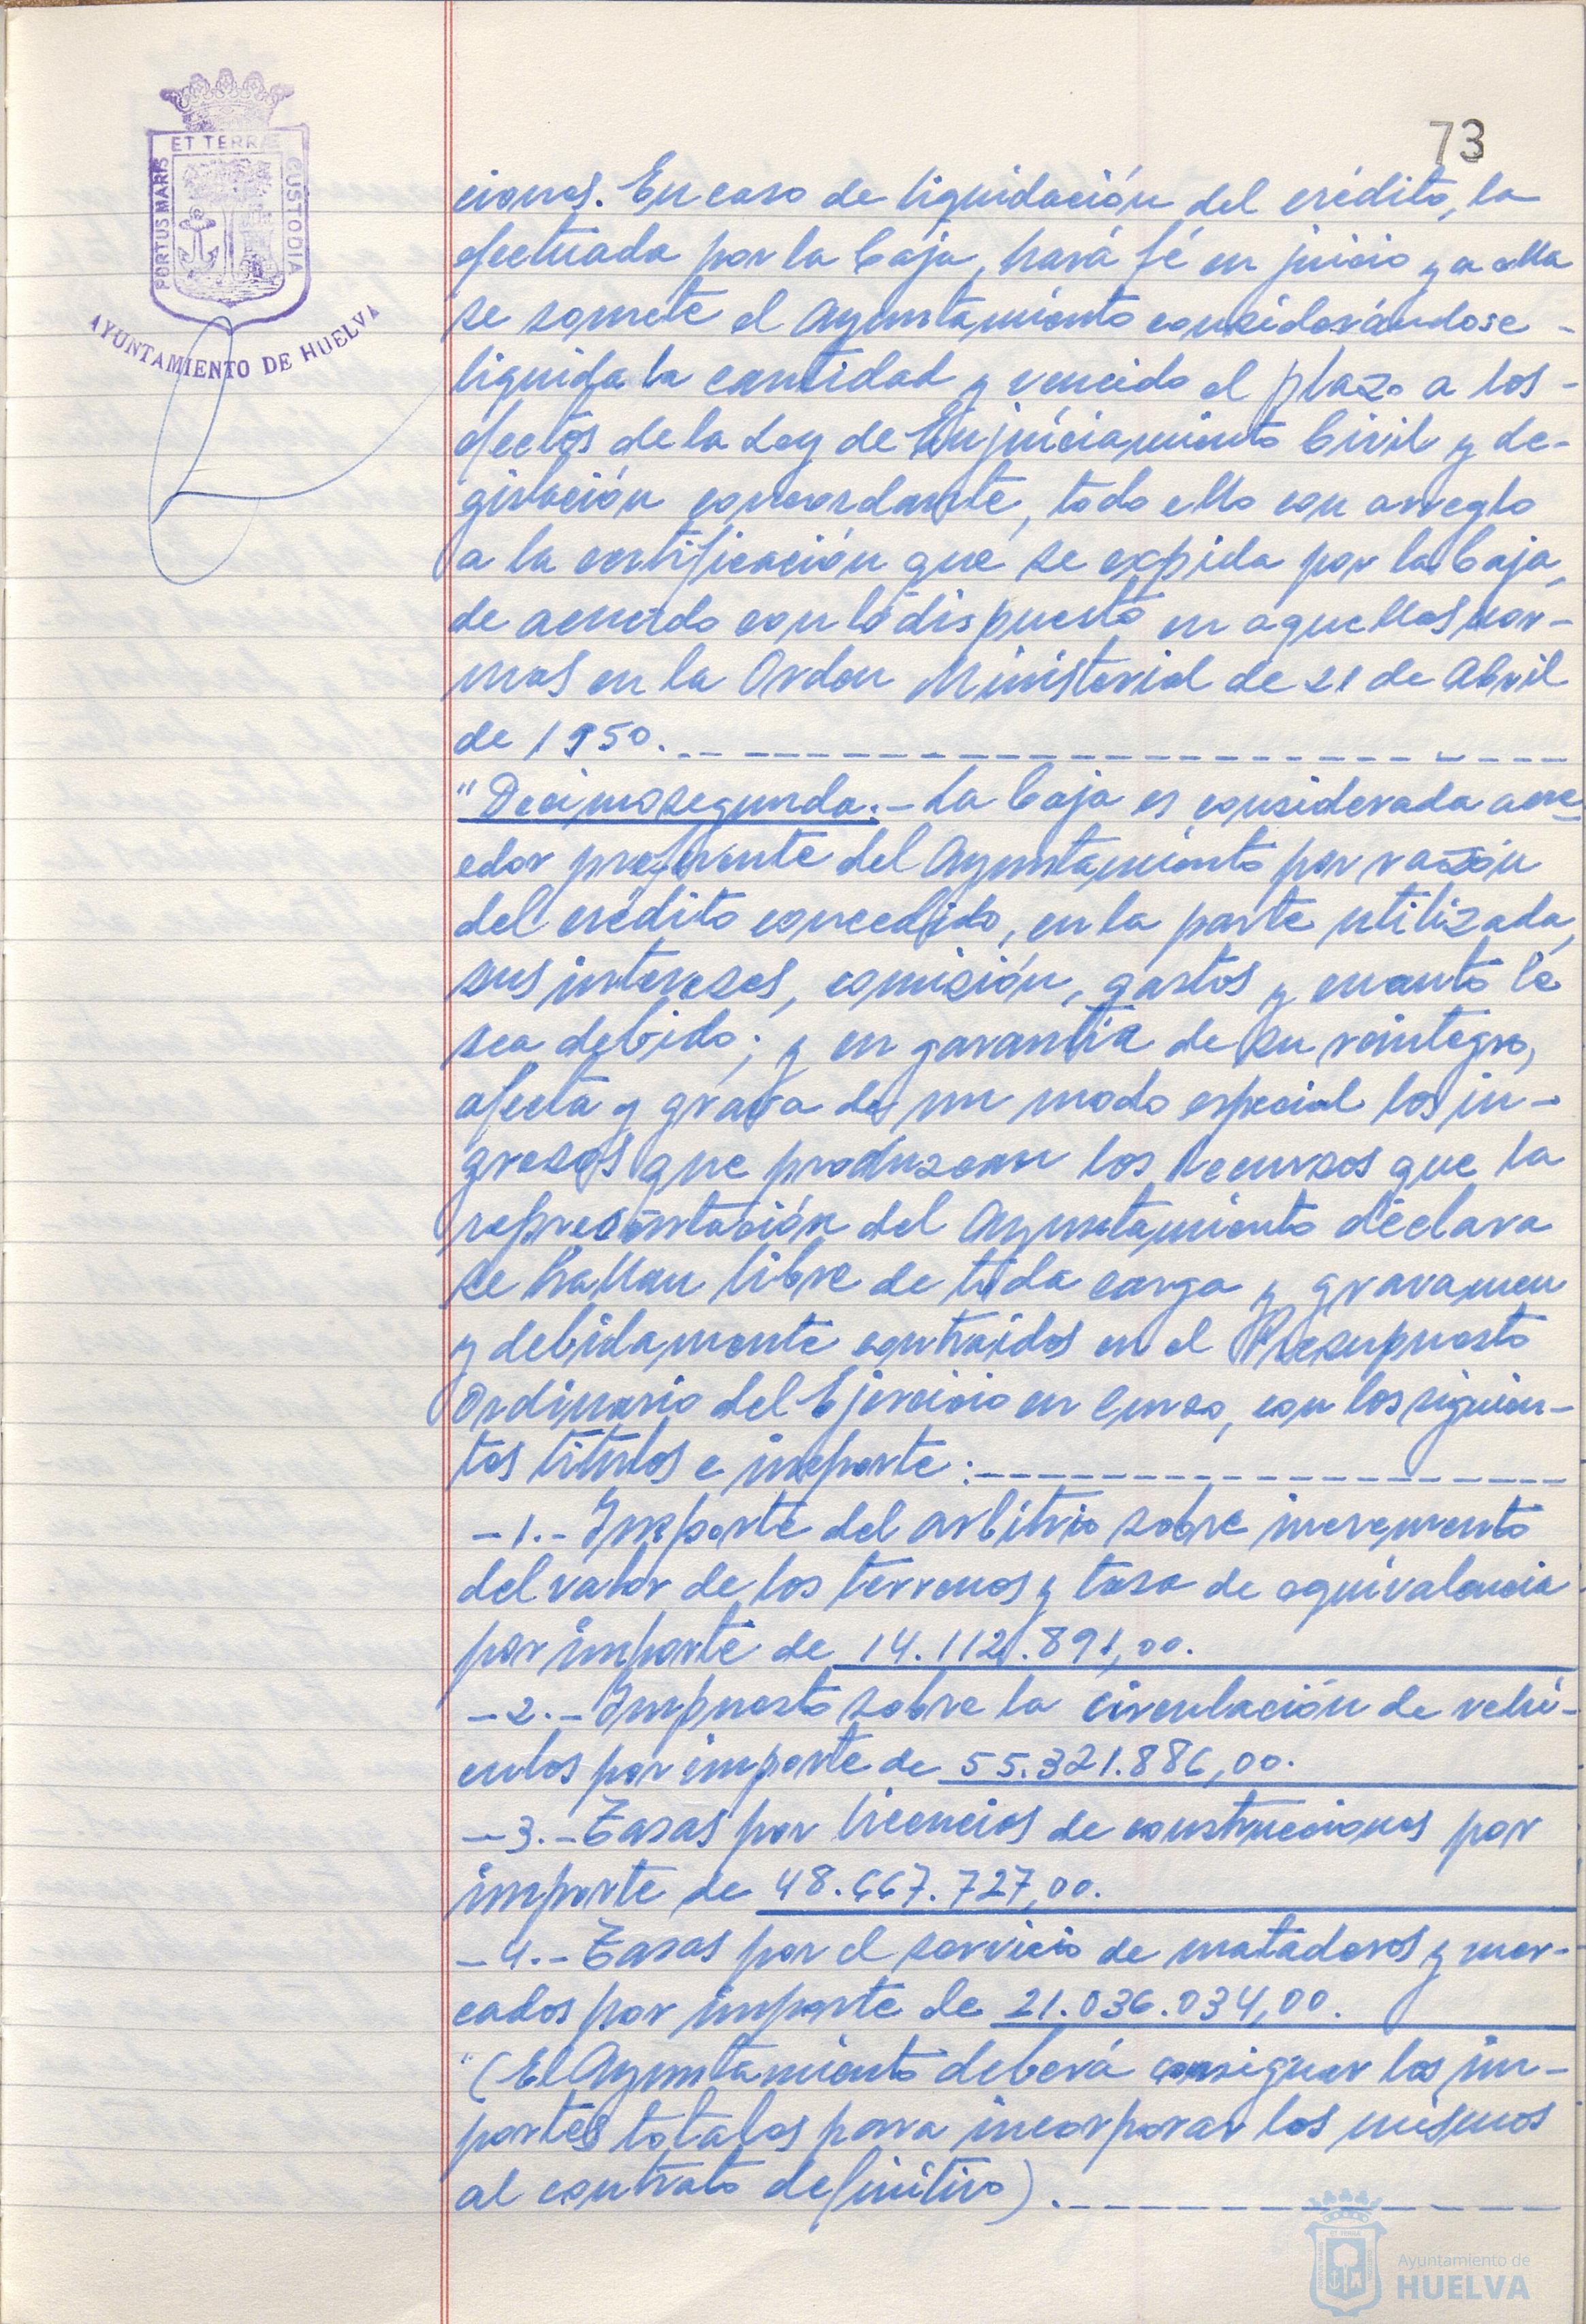 73
ET TERRÆ
PORTUS MARIS
CUSTODIA
AYUNTAMIENTO DE HUELVA
ciones. En caso de liquidación del crédito, la
efectuada por la Caja, hará fé en juicio y a ella
se somete el Ayuntamiento considerándose -
liquida la cantidad y vencido el plazo a los -
efectos de la Ley de Enjuiciamiento Civil y de-
gislación concordante, todo ello con arreglo
a la certificación que se expida por la Caja,
de acuerdo con lo dispuesto en aquellas nor-
mas en la Orden Ministerial de 21 de Abril
de 1950.
"Decimosegunda.- La Caja es considerada acre-
edor preferente del Ayuntamiento por razón
del crédito concedido, en la parte utilizada,
sus intereses, comisión, gastos y cuanto le
sea debido; y en garantía de su reintegro,
afecta y grava de un modo especial los in-
gresos que produzcan los recursos que la
representación del Ayuntamiento declara
se hallan libre de toda carga y gravamen
y debidamente contraidos en el Presupuesto
Ordinario del Ejercicio en Curso, con los siguien-
tes títulos e importe:
-1.- Importe del arbitrio sobre incremento
del valor de los terrenos y tasa de equivalencia
por importe de 14.112.891,00.
-2.- Impuesto sobre la circulación de vehí-
culos por importe de 55.321.886,00.
-3.- Tasas por licencias de construcciones por
importe de 48.667.727,00.
-4.- Tasas por el servicio de mataderos y mer-
cados por importe de 21.036.034,00.
"(El Ayuntamiento deberá consignar los im-
portes totales para incorporar los mismos
al contrato definitivo).
Ayuntamiento de
HUELVA